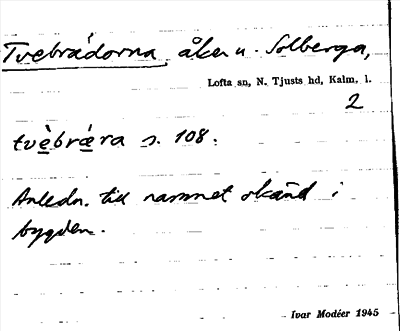 Tvebrådorna åker u. Solberga,
Lofta sn, N. Tjusts hd, Kalm. l.
2
tvè̱brǽ̱ra s. 108.
Anledn. till namnet okänd i
bygden.
Ivar Modéer 1945